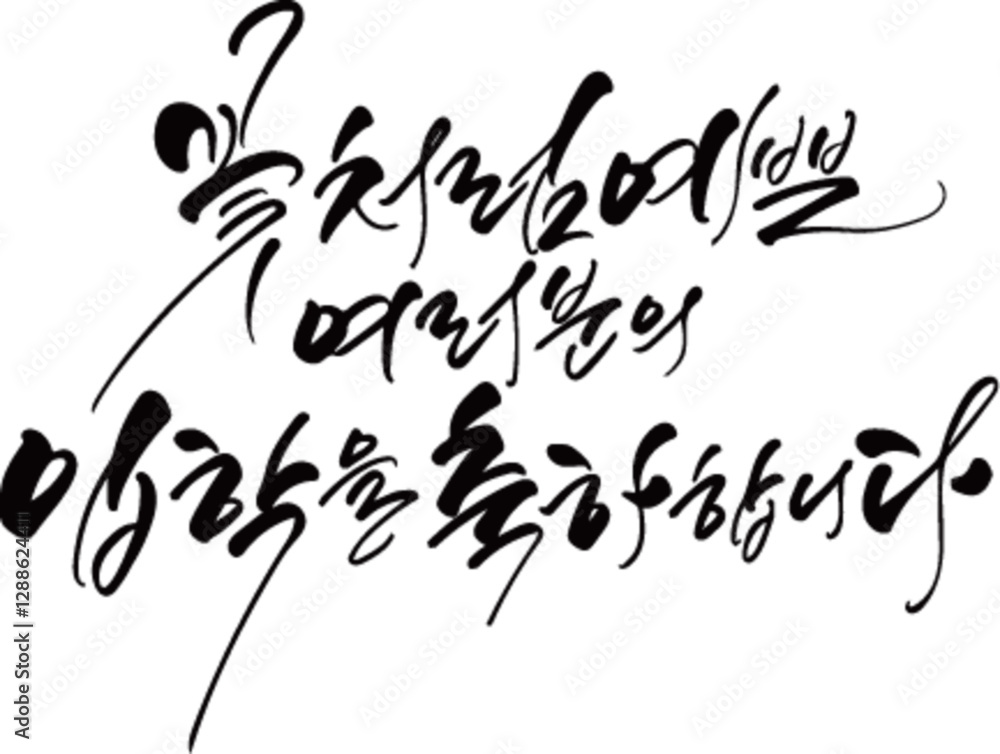 꽃처럼 예쁜
여러분의
입학을 축하합니다
Adobe Stock | #1288624411